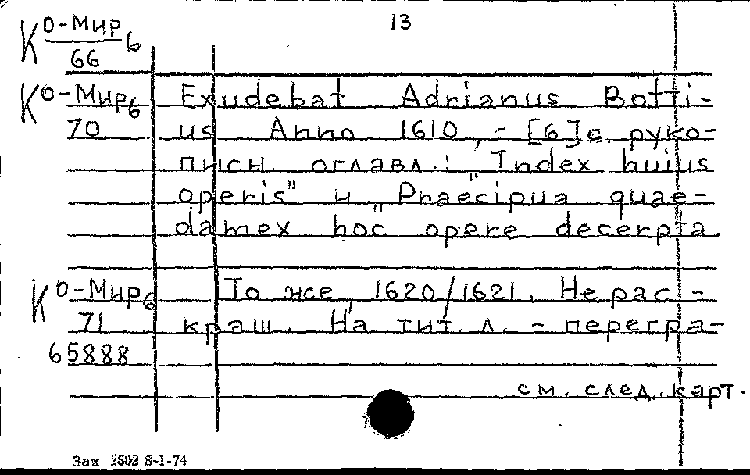 13
Ко-Мир6
66
Ко-Мир6 Exudebat Adrianus Botti-
70 us Anno 1610, - [6]с. руко-
писн оглавл.: "Index huius
operis" и "Praecipua quae-
damex hoc opere decerpta
Ко-Мир6 То же, 1620/1621. Нерас-
71 краш. На тит. л. - перегра-
65888
см. след. карт.
Зак 2502 8-1-74